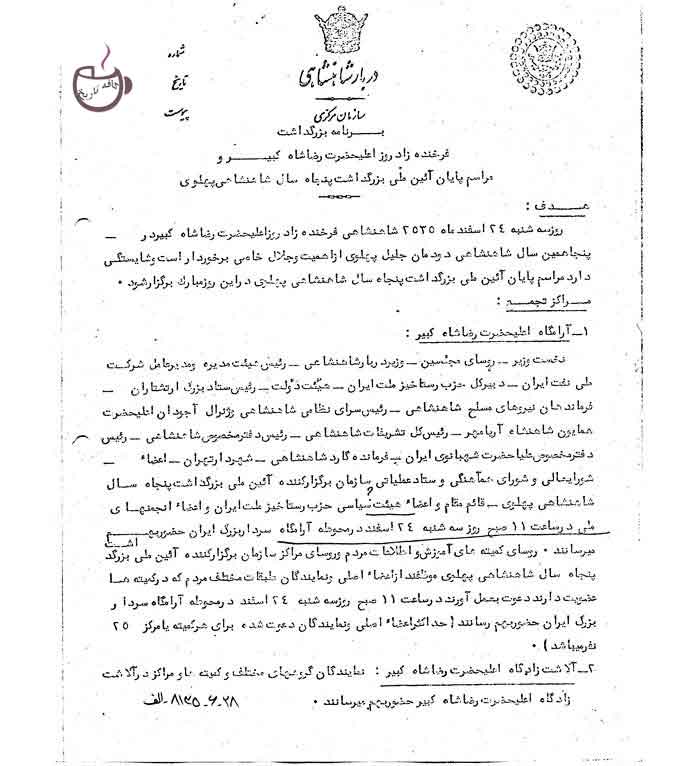 شماره
تاریخ
پیوست
کافه تاریخ
دربار شاهنشاهی
سازمان مرکزی
برنامه بزرگداشت
فرخنده زاد روز اعلیحضرت رضا شاه کبیر و
مراسم پایان آئین ملی بزرگداشت پنجاه سال شاهنشاهی پهلوی
هدف :
روز سه شنبه ۲۴ اسفند ماه ۲۵۳۵ شاهنشاهی فرخنده زاد روز اعلیحضرت رضا شاه کبیر در —
پنجاهمین سال شاهنشاهی دودمان جلیل پهلوی از اهمیت و جلال خاصی برخوردار است و شایستگی
دارد مراسم پایان آئین ملی بزرگداشت پنجاه سال شاهنشاهی پهلوی در این روز مبارک برگزار شود ۰
مراکز تجمع :
۱— آرامگاه اعلیحضرت رضا شاه کبیر :
نخست وزیر — روسای مجلسین — وزیر دربار شاهنشاهی — رئیس هیئت مدیره و مدیر عامل شرکت
ملی نفت ایران — دبیر کل حزب رستاخیز ملت ایران — هیئت دولت — رئیس ستاد بزرگ ارتشتاران —
فرماندهان نیروهای مسلح شاهنشاهی — رئیس سرای نظامی شاهنشاهی و ژنرال آجودان اعلیحضرت
همایون شاهنشاه آریامهر — رئیس کل تشریفات شاهنشاهی — رئیس دفتر مخصوص شاهنشاهی — رئیس
دفتر مخصوص علیا حضرت شهبانوی ایران — فرمانده گارد شاهنشاهی — شهردار تهران — اعضاء —
شورایعالی و شورای هماهنگی و ستاد عملیاتی سازمان برگزار کننده آئین ملی بزرگداشت پنجاه سال
شاهنشاهی پهلوی — قائم مقام و اعضاء هیئت ؟ سیاسی حزب رستاخیز ملت ایران و اعضاء انجمنهای
ملی در ساعت ۱۱ صبح روز سه شنبه ۲۴ اسفند در محوطه آرامگاه سردار بزرگ ایران حضور بهم
میرسانند ۰ روسای کمیته های آموزش و اطلاعات مردم و روسای مراکز سازمان برگزار کننده آئین ملی بزرگداشت
پنجاه سال شاهنشاهی پهلوی موظفند از اعضاء اصلی و نمایندگان طبقات مختلف مردم که در کمیته ها
عضویت دارند دعوت بعمل آورند در ساعت ۱۱ صبح روز سه شنبه ۲۴ اسفند در محوطه آرامگاه سردار
بزرگ ایران حضور بهم رسانند ( حداکثر اعضاء اصلی و نمایندگان دعوت شده برای هر کمیته یا مرکز ۲۵
نفر میباشد ) ۰
۲— آلاشت زادگاه اعلیحضرت رضا شاه کبیر : نمایندگان گروههای مختلف و کمیته ها و مراکز در آلاشت
زادگاه اعلیحضرت رضا شاه کبیر حضور بهم میرسانند ۰
۲۸-۶-۸۱۳۵-الف